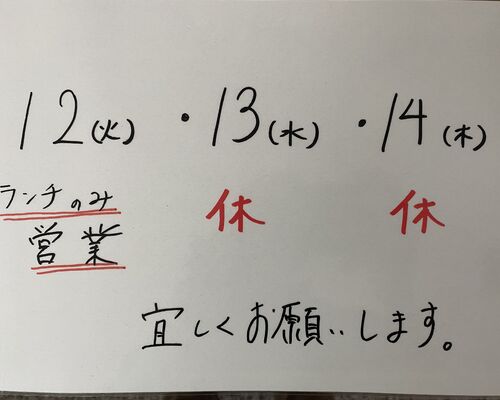 12(火)・13(水)・14(木)
ランチのみ 休 休
営業
宜しくお願いします。